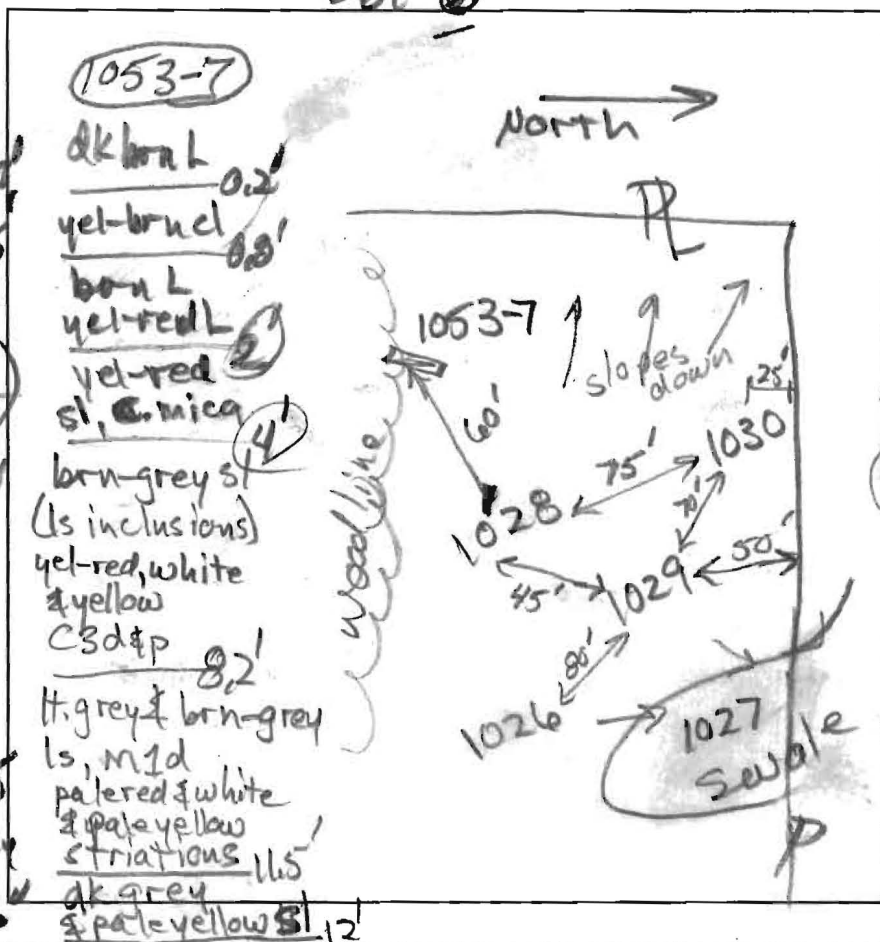 1053-7
dk brn L
0.2'
yel-brn cl
0.8'
brn L
yel-red L
2'
yel-red
sl, c. mica
4'
brn-grey sl
(ls inclusions)
yel-red, white
& yellow
C3d&p
8.2'
lt. grey & brn-grey
ls, m1d
pale red & white
& pale yellow
striations 11.5'
dk grey
& pale yellow sl 12'
North
PL
1053-7
slopes
down
25'
60'
woodline
1028
75'
1030
70'
45'
1029
50'
80'
1026
1027
Swale
P